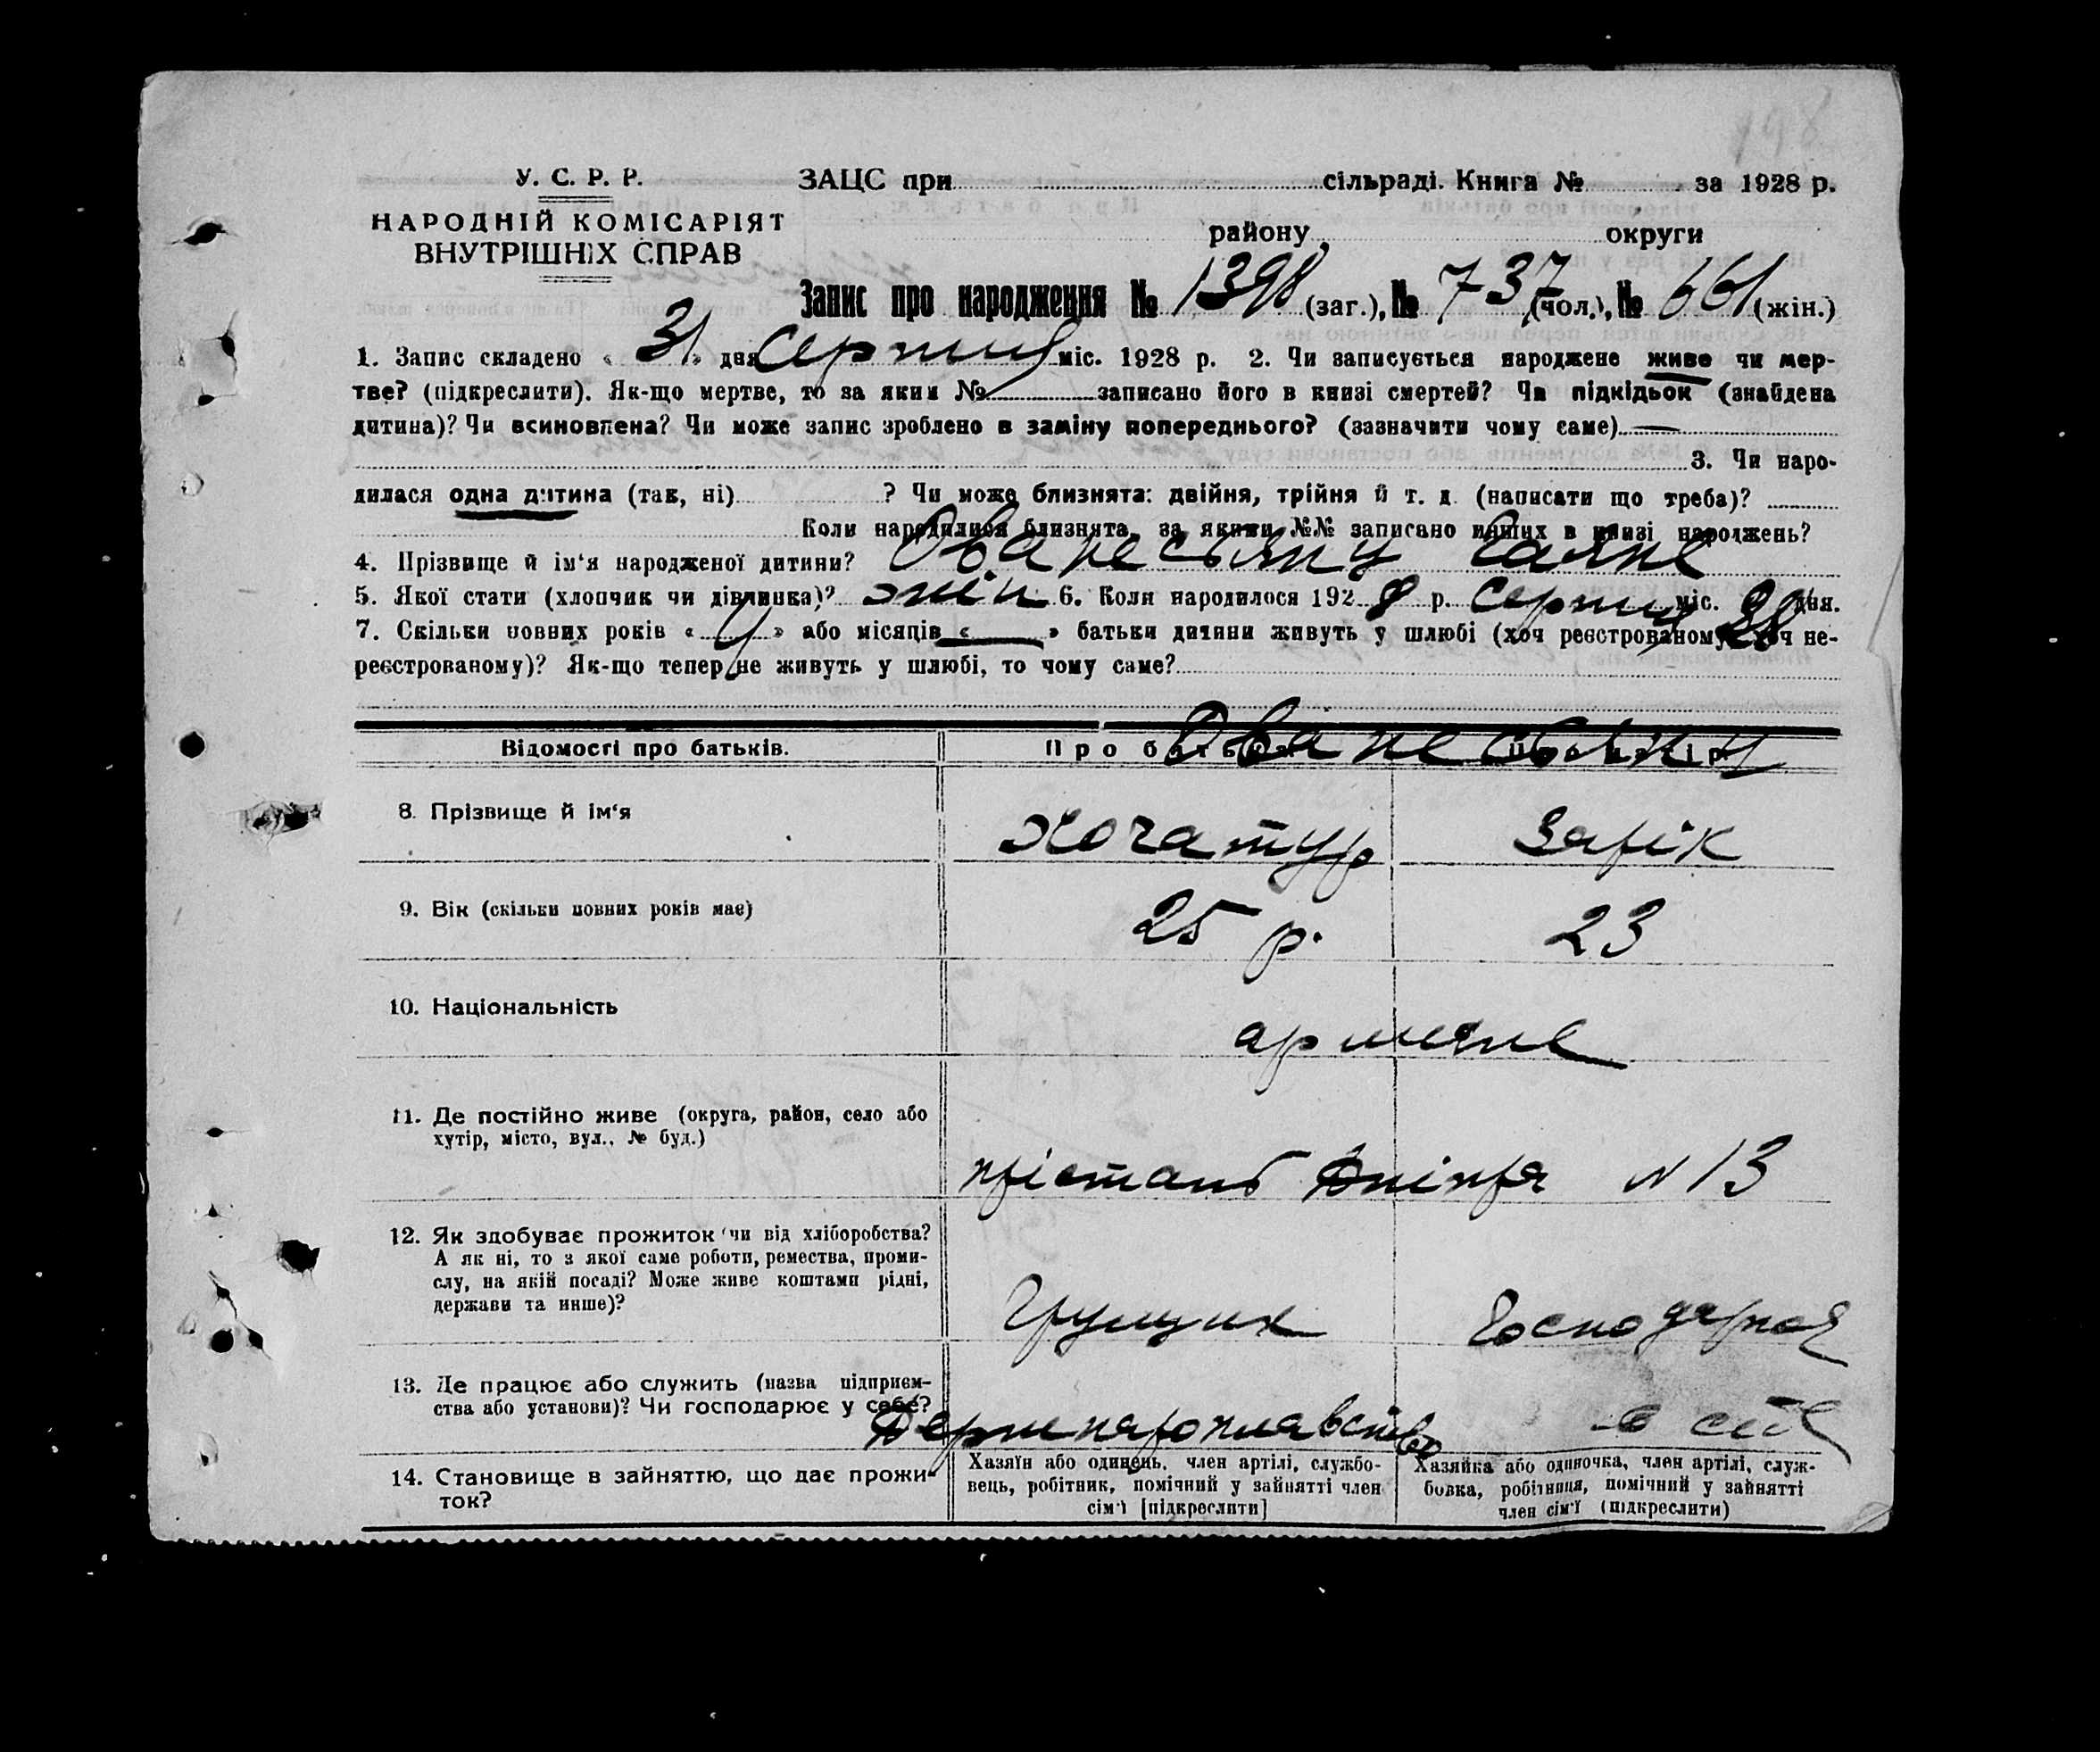 198
У. С. Р. Р.
НАРОДНІЙ КОМІСАРІЯТ
ВНУТРІШНІХ СПРАВ
ЗАЦС при сільраді. Книга № за 1928 р.
району, округи
Запис про народження № 1398 (заг.), № 737 (чол.), № 661 (жін.)
1. Запис складено « 31 » дня Серпня міс. 1928 р. 2. Чи записується народжене живе чи мер-
тве? (підкреслити). Як-що мертве, то за яким № записано його в книзі смертей? Чи підкідьок (знайдена
дитина)? Чи всиновлена? Чи може запис зроблено в заміну попереднього? (зазначити чому саме) —
3. Чи наро-
дилася одна дитина (так, ні) ? Чи може близнята: двійня, трійня й т. д. (написати що треба)?
Коли народилися близнята, за якими №№ записано инших в книзі народжень?
4. Прізвище й ім‘я народженої дитини? Ованесьянц Гаяне
5. Якої стати (хлопчик чи дівчинка)? жін 6. Коли народилося 1928 р. Серпня міс. дня.
7. Скільки повних років « » або місяців « — » батьки дитини живуть у шлюбі (хоч реєстрованому, хоч не-
реєстрованому)? Як-що тепер не живуть у шлюбі, то чому саме?
Відомості про батьків. Про батька Про матір
Ованесьянц
8. Прізвище й ім‘я Хочатур Зарік
9. Вік (скільки повних років має) 25 р. 23
10. Національність армене
11. Де постійно живе (округа, район, село або
хутір, місто, вул., № буд.)
прістань Дніпря N 13
12. Як здобуває прожиток (чи від хліборобства?
А як ні, то з якої саме роботи, ремества, проми-
слу, на якій посаді? Може живе коштами рідні,
держави та инше)?
Грущик Господарює
13. Де працює або служить (назва підприєм-
ства або установи)? Чи господарює у себе?
Держпароплавство в себе
14. Становище в зайняттю, що дає прожи-
ток?
Хазяїн або одинець, член артілі, службо-
вець, робітник, помічний у зайнятті член
сім‘ї [підкреслити]
Хазяйка або одиночка, член артілі, служ-
бовка, робітниця, помічний у зайнятті
член сім‘ї (підкреслити)